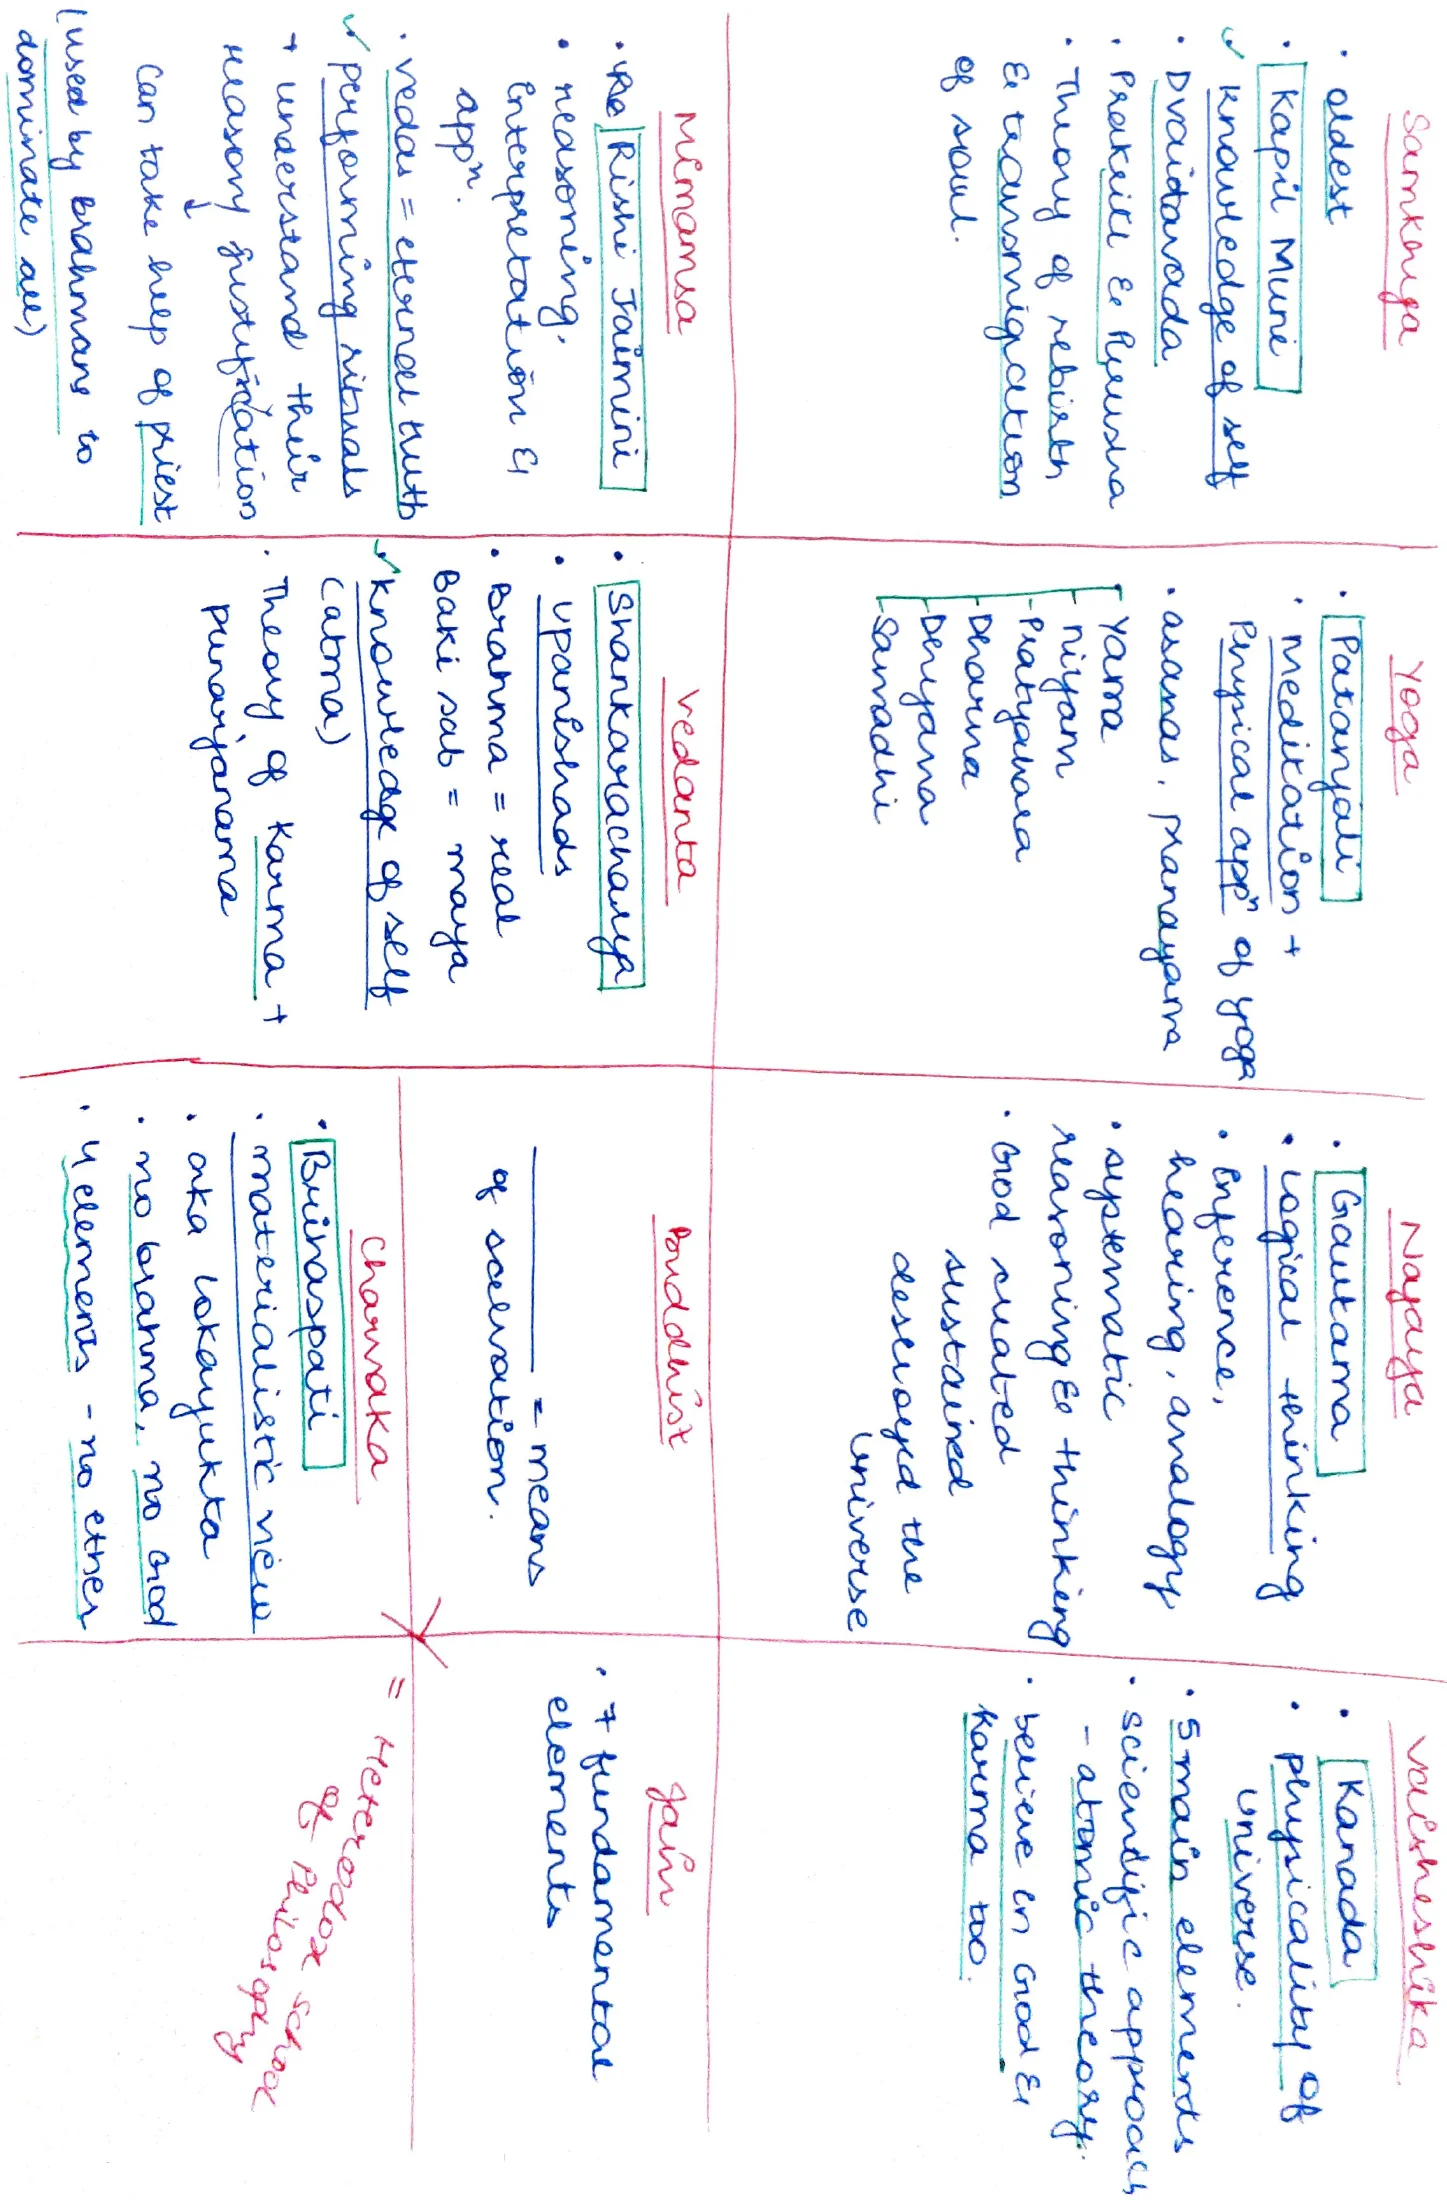 Samkhya
• oldest
• Kapil Muni
✓ Knowledge of self
• Dvaitavada
• Prakriti & Purusha
• Theory of rebirth
& transmigration
of soul.
Yoga
• Patanjali
• Meditation +
Physical appⁿ of yoga
• asanas, pranayama
Yama
niyam
Pratyahara
Dharna
Dhyana
Samadhi
Nayaya
• Gautama
• Logical thinking
• Inference,
hearing, analogy
• systematic
reasoning & thinking
• God created
sustained
destroyed the
Universe
Vaisheshika
• Kanada
• Physicality of
Universe.
• 5 main elements
• scientific approach
- atomic theory.
• believe in God &
Karma too.
Mimamsa
• Rishi Jaimini
• reasoning,
interpretation &
appⁿ.
• vedas = eternal truth
✓ performing rituals
+ understand their
reasony justification
↓
Can take help of priest
(used by brahmans to
dominate all)
Vedanta
• Shankaracharya
• Upanishads
• Brahma = real
Baki sab = maya
✓ Knowledge of self
(atma)
• Theory of Karma +
Punarjanama
Bouddhist
______ = means
of salvation.
Charvaka
• Brihaspati
• materialistic view
• aka Lokayukta
• no brahma, no God
• 4 elements - no ether
Jain
• 7 fundamental
elements
= Heterodox school
of Philosophy